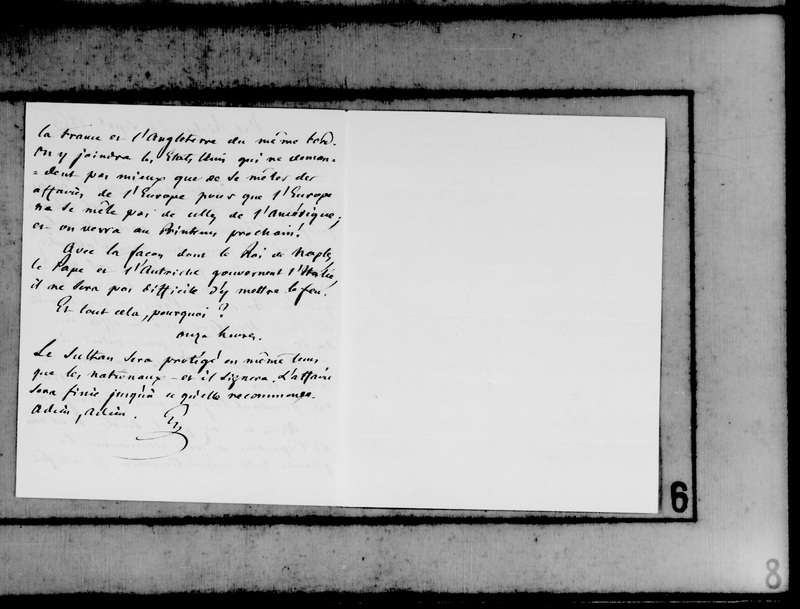 la France et l'Angleterre du même bord.
On y joindra les Etats Unis qui ne deman-
=dent pas mieux que de se mêler des
affaires de l'Europe pour que l'Europe
ne se mêle pas de celles de l'Amérique;
et on verra au Printems prochain!
Avec la façon dont le Roi de Naples,
le Pape et l'Autriche gouvernent l'Italie,
il ne sera pas difficile d'y mettre le feu.
Et tout cela, pourquoi?
onze heures.
Le Sulthan sera protégé en même tems
que les nationaux - et il signera. L'affaire
sera finie jusqu'à ce qu'elle recommence.
Adieu, adieu.
6
8